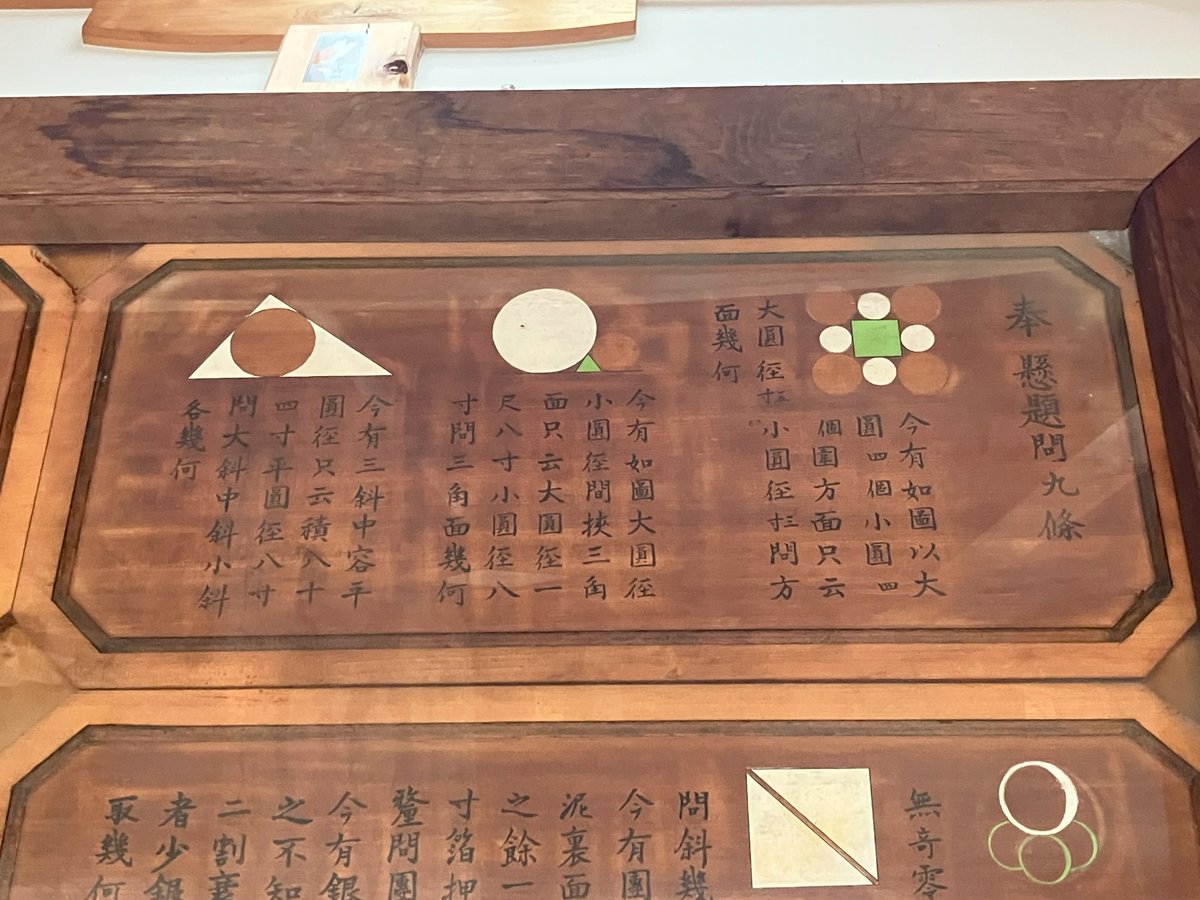 奉懸題問九條
今有如圖以大
圓四個小圓四
個圍方面只云
大圓径 小圓径 問方
面幾何
今有如圖大圓径
小圓径間挾三角
面只云大圓径一
尺八寸小圓径八
寸問三角面幾何
今有三斜中容平
圓径只云積八十
四寸平圓径八寸
問大斜中斜小斜
各幾何
無奇零
問斜幾
今有團
泥裏面
之餘一
寸箔押
釐問團
今有銀
之不知
二割衰
者少銀
取幾何